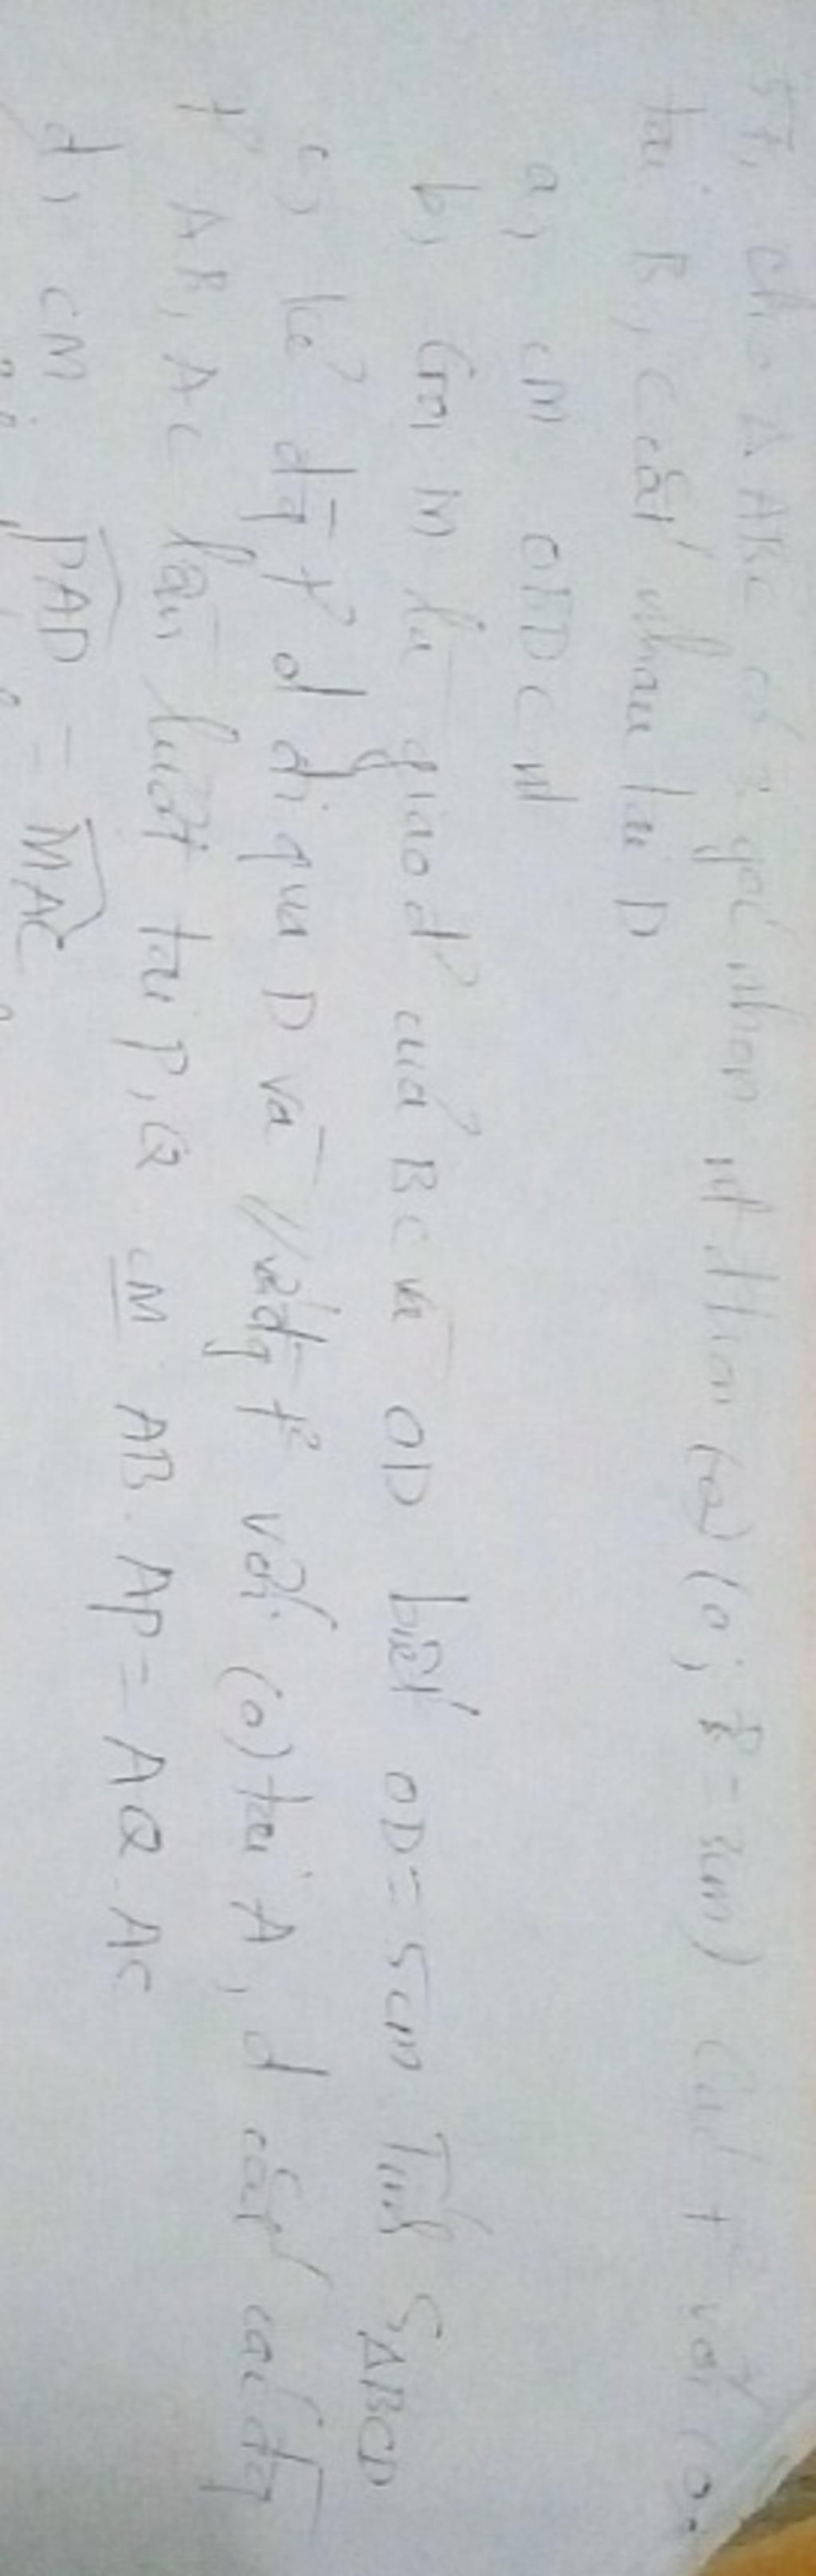 57, cho Δ ABC có 3 góc nhọn nt đtròn (O; R=3cm) Các t² với (O)
tại B, C cắt nhau tại D
a, CM OBDC nt
b, Gọi M là giao đ² của BC và OD biết OD = 5cm Tính S ABCD
c, kẻ đg t² d đi qua D và // với đg t² với (O) tại A, d cắt các đg
t² AB, AC lần lượt tại P, Q CM AB . AP = AQ . AC
d, CM PAD = MAC